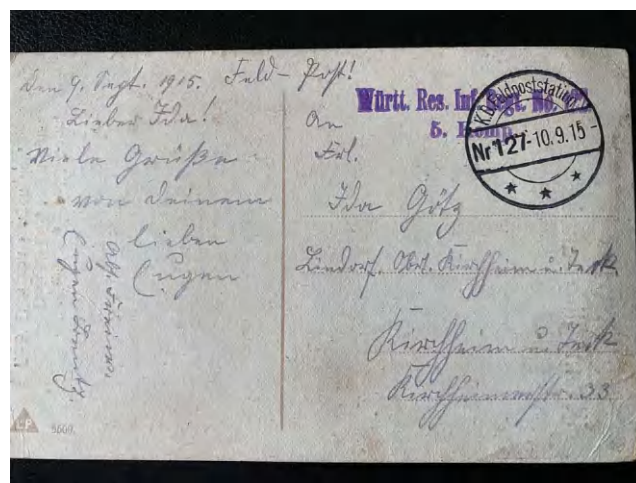 Den 9. Sept. 1915. Feld-Post!
Lieber Ida!
Viele Grüße
von Deinem
lieben
Eugen
Abs. 
Eugen
Württ. Res. Inf. Regt. No.
5. Komp.
K.D. Feldpoststation
Nr 127 -10.9.15-
An
Frl.
Ida Götz
Lindorf. Obt. Kirchheim u. Teck
Kirchheim u. Teck
Kirchheimerstr. 33
5669.